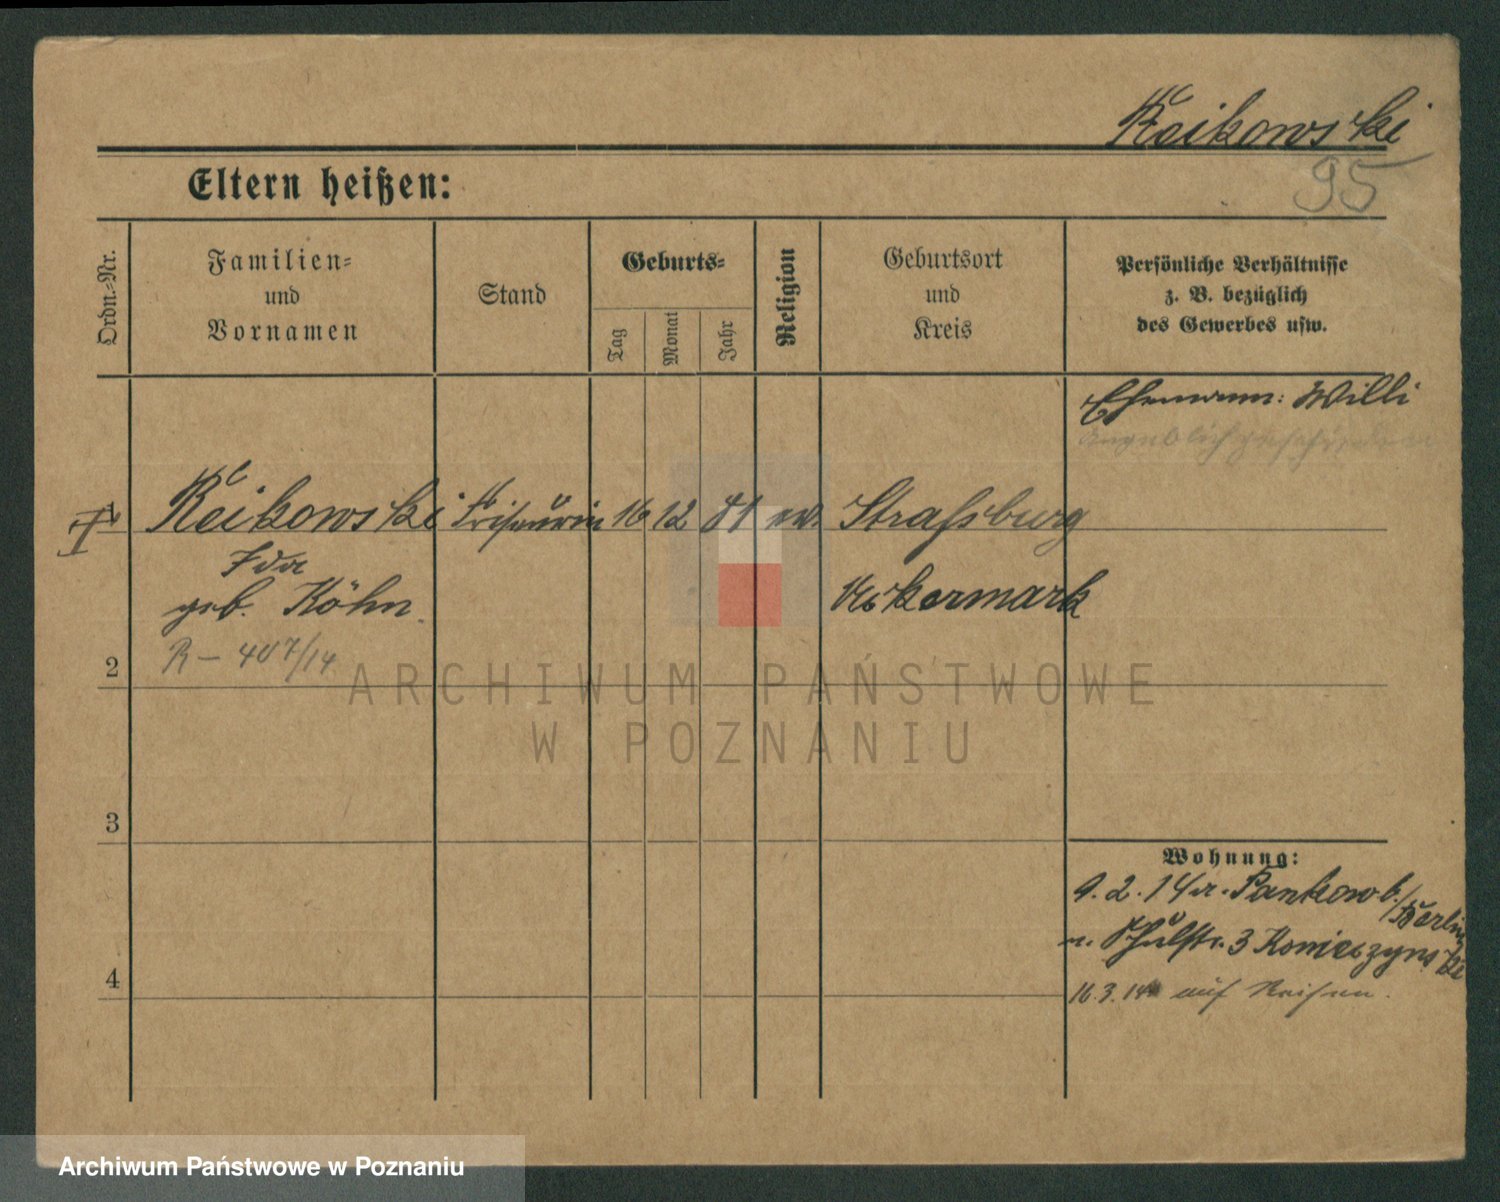 Reikowski
95
Eltern heißen:
Ordn.-Nr.
Familien-
und
Vornamen
Stand
Geburts-
Tag
Monat
Jahr
Religion
Geburtsort
und
Kreis
Persönliche Verhältnisse
z. B. bezüglich
des Gewerbes usw.
Ehemann: Willi
angeblich geschieden
1 Reikowski Friseurin 16 12 81 ev. Strassburg
Ida
geb. Köhn.
Uckermark
R – 407/14
2
3
4
Wohnung:
9.2.14 a. Pankow b./Berlin
n. Schulstr. 3 Konieczynski
16.3.14 auf Reisen.
ARCHIWUM PAŃSTWOWE
W POZNANIU
Archiwum Państwowe w Poznaniu